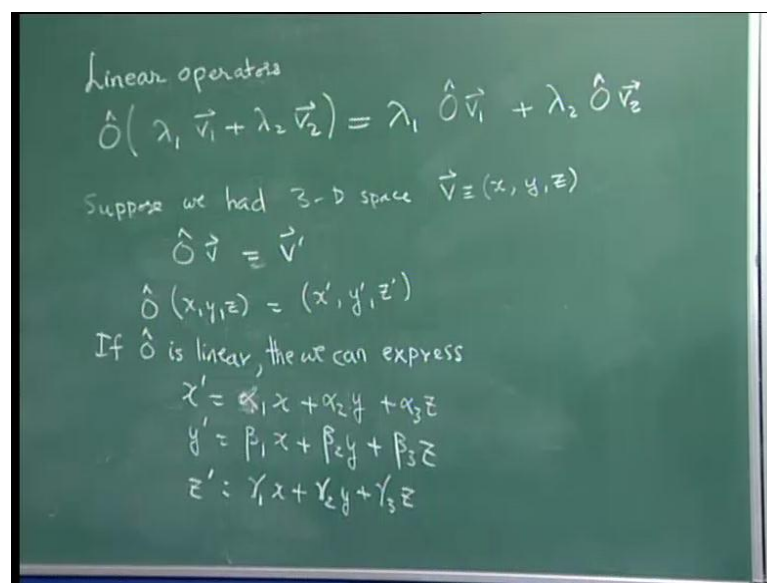 Linear operators
Ô( λ₁ v⃗₁ + λ₂ v⃗₂ ) = λ₁ Ô v⃗₁ + λ₂ Ô v⃗₂
Suppose we had 3-D space v⃗ ≡ (x, y, z)
Ô v⃗ = v⃗'
Ô (x, y, z) = (x', y', z')
If Ô is linear, the we can express
x' = α₁x + α₂y + α₃z
y' = β₁x + β₂y + β₃z
z' = γ₁x + γ₂y + γ₃z